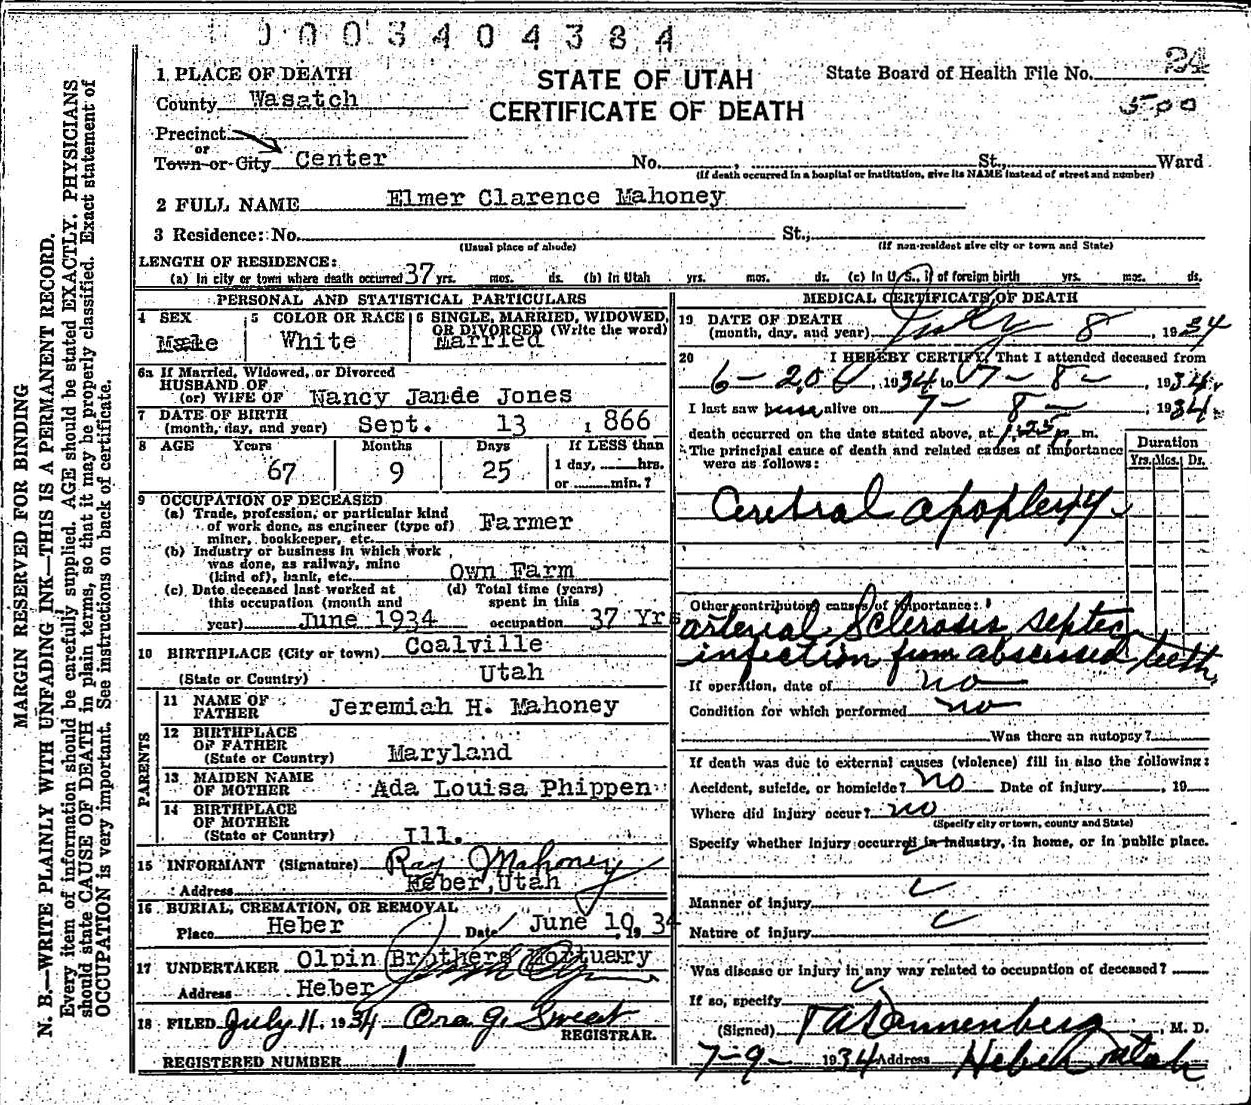 0003404384
1 PLACE OF DEATH
STATE OF UTAH
CERTIFICATE OF DEATH
State Board of Health File No. 24
500
County Wasatch
Precinct
or
Town or City Center No. , St., Ward
(If death occurred in a hospital or institution, give its NAME instead of street and number)
2 FULL NAME Elmer Clarence Mahoney
3 Residence: No. St.,
(Usual place of abode) (If non-resident give city or town and State)
LENGTH OF RESIDENCE:
(a) In city or town where death occurred 37 yrs. mos. ds. (b) In Utah yrs. mos. ds. (c) In U. S., if of foreign birth yrs. mos. ds.
PERSONAL AND STATISTICAL PARTICULARS
4 SEX
Male
5 COLOR OR RACE
White
6 SINGLE, MARRIED, WIDOWED, OR DIVORCED (Write the word)
Married
6a If Married, Widowed, or Divorced
HUSBAND OF
(or) WIFE OF Nancy Jande Jones
7 DATE OF BIRTH
(month, day, and year) Sept. 13 1866
8 AGE Years Months Days If LESS than
67 9 25 1 day, hrs.
or min.?
9 OCCUPATION OF DECEASED
(a) Trade, profession, or particular kind
of work done, as engineer (type of)
miner, bookkeeper, etc. Farmer
(b) Industry or business in which work
was done, as railway, mine
(kind of), bank, etc. Own Farm
(c) Date deceased last worked at
this occupation (month and
year) June 1934
(d) Total time (years)
spent in this
occupation 37 Yrs
10 BIRTHPLACE (City or town) Coalville
(State or Country) Utah
PARENTS
11 NAME OF
FATHER Jeremiah H. Mahoney
12 BIRTHPLACE
OF FATHER
(State or Country) Maryland
13 MAIDEN NAME
OF MOTHER Ada Louisa Phippen
14 BIRTHPLACE
OF MOTHER
(State or Country) Ill.
15 INFORMANT (Signature) Ray Mahoney
Address Heber, Utah
16 BURIAL, CREMATION, OR REMOVAL
Place Heber Date June 10, 19 34
17 UNDERTAKER Olpin Brothers Mortuary
Address Heber
18 FILED July 11, 1934 Ora G. Sweat
REGISTRAR.
REGISTERED NUMBER 1
MEDICAL CERTIFICATE OF DEATH
19 DATE OF DEATH
(month, day, and year) July 8, 1934
20 I HEREBY CERTIFY, That I attended deceased from
6-20, 1934 to 7-8-, 1934,
I last saw him alive on 7-8-, 1934
death occurred on the date stated above, at 1.25 p. m.
The principal cause of death and related causes of importance
were as follows:
Duration
Yrs. Mos. Ds.
Cerebral apoplexy
Other contributory causes of importance:
arterial Sclerosis septec
infection from abscessed teeth
If operation, date of no
Condition for which performed no
Was there an autopsy?
If death was due to external causes (violence) fill in also the following:
Accident, suicide, or homicide? no Date of injury , 19
Where did injury occur? no
(Specify city or town, county and State)
Specify whether injury occurred in industry, in home, or in public place.
Manner of injury
Nature of injury
Was disease or injury in any way related to occupation of deceased?
If so, specify
(Signed) Dannenberg, M. D.
7-9- 1934 Address Heber Utah
MARGIN RESERVED FOR BINDING
N. B.—WRITE PLAINLY WITH UNFADING INK—THIS IS A PERMANENT RECORD.
Every item of information should be carefully supplied. AGE should be stated EXACTLY. PHYSICIANS
should state CAUSE OF DEATH in plain terms, so that it may be properly classified. Exact statement of
OCCUPATION is very important. See instructions on back of certificate.